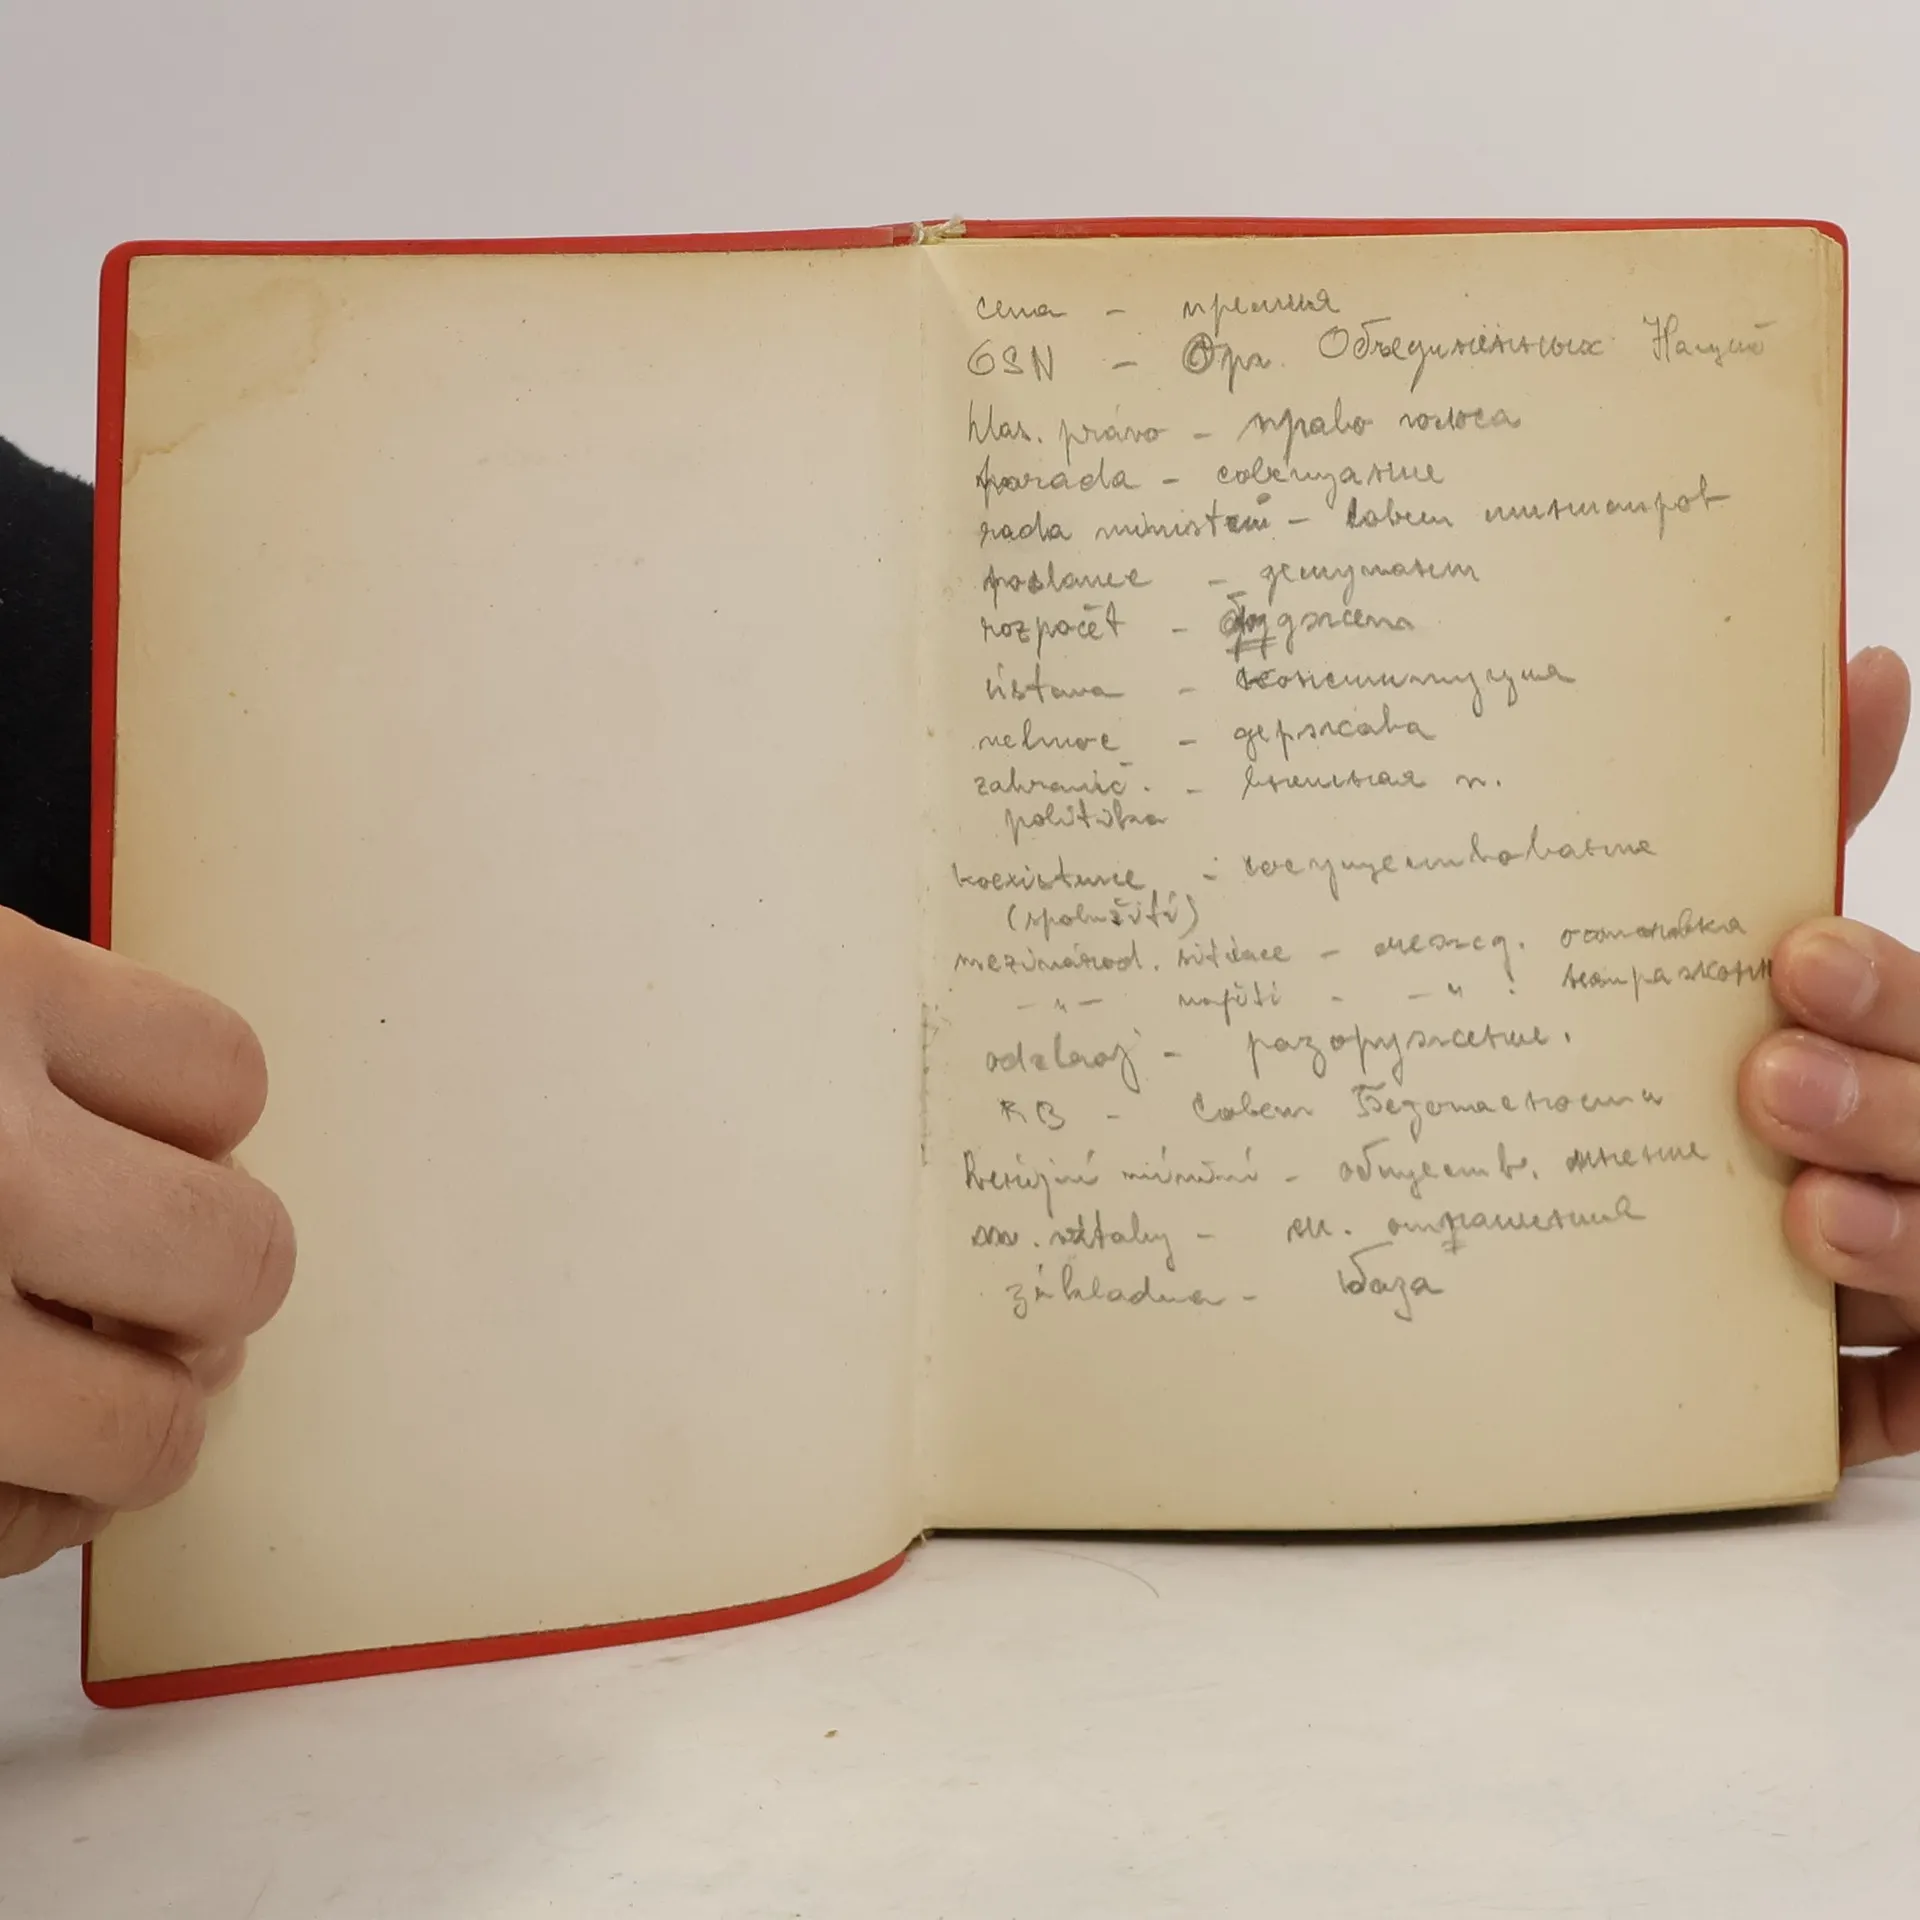 cena - премия
OSN - Орг. Объединённых Наций
hlas. právo - право голоса
porada - совещание
rada ministrů - Совет министров
poslanec - депутат
rozpočet - бюджет
ústava - конституция
velmoc - держава
zahranič. - внешняя п.
politika
koexistence - сосуществование
(spolužití)
mezinárod. situace - межд. остановка
-"- napětí - -"- :
odzbroj - разоружение.
RB - Совет Безопасности
Veřejné mínění - обществ. мнение
vztahy - отношения
základna - база